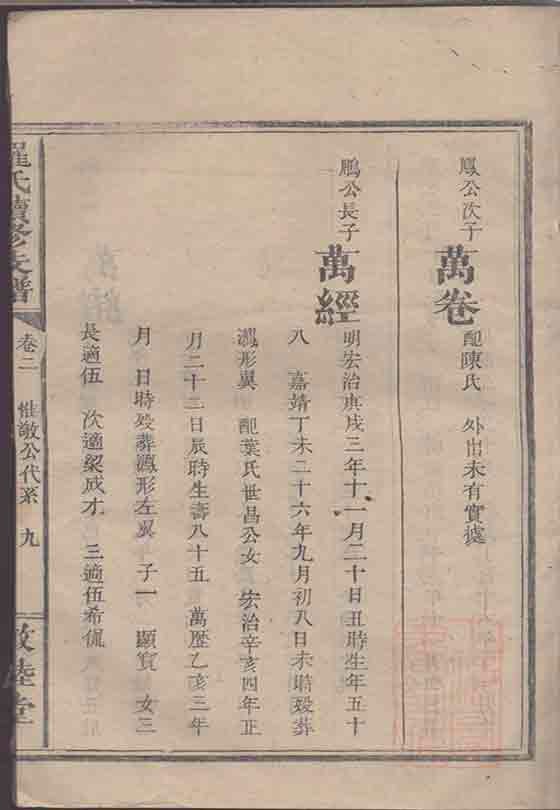 鳳公次子 萬卷 配陳氏 外出未有實據
鵬公長子 萬經 明宏治庚戌三年十一月二十日丑時生年五十
八 嘉靖丁未二十六年九月初八日未時歿葬
鴻形翼 配葉氏世昌公女 宏治辛亥四年正
月二十三日辰時生壽八十五 萬歷乙亥三年
月 日時歿葬鴻形左翼 子一 顯賓 女三
長適伍 次適梁成才 三適伍希侃
羅氏續修支譜 卷二 惟敬公代系 九 敦睦堂